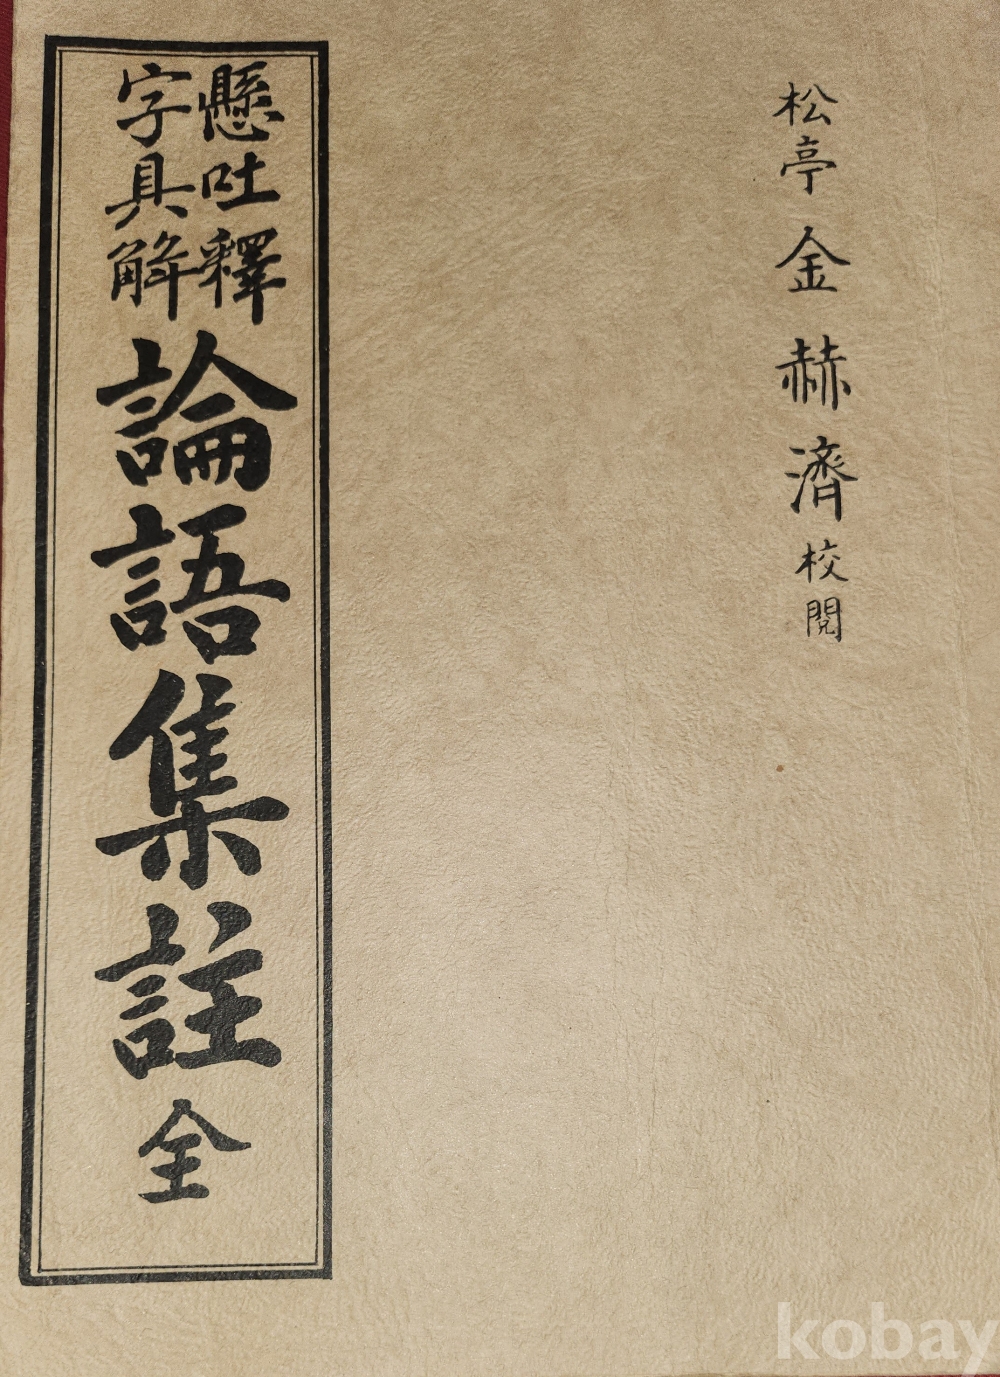 松亭 金赫濟 校閱
懸吐釋
字具解
論語集註 全
kobay